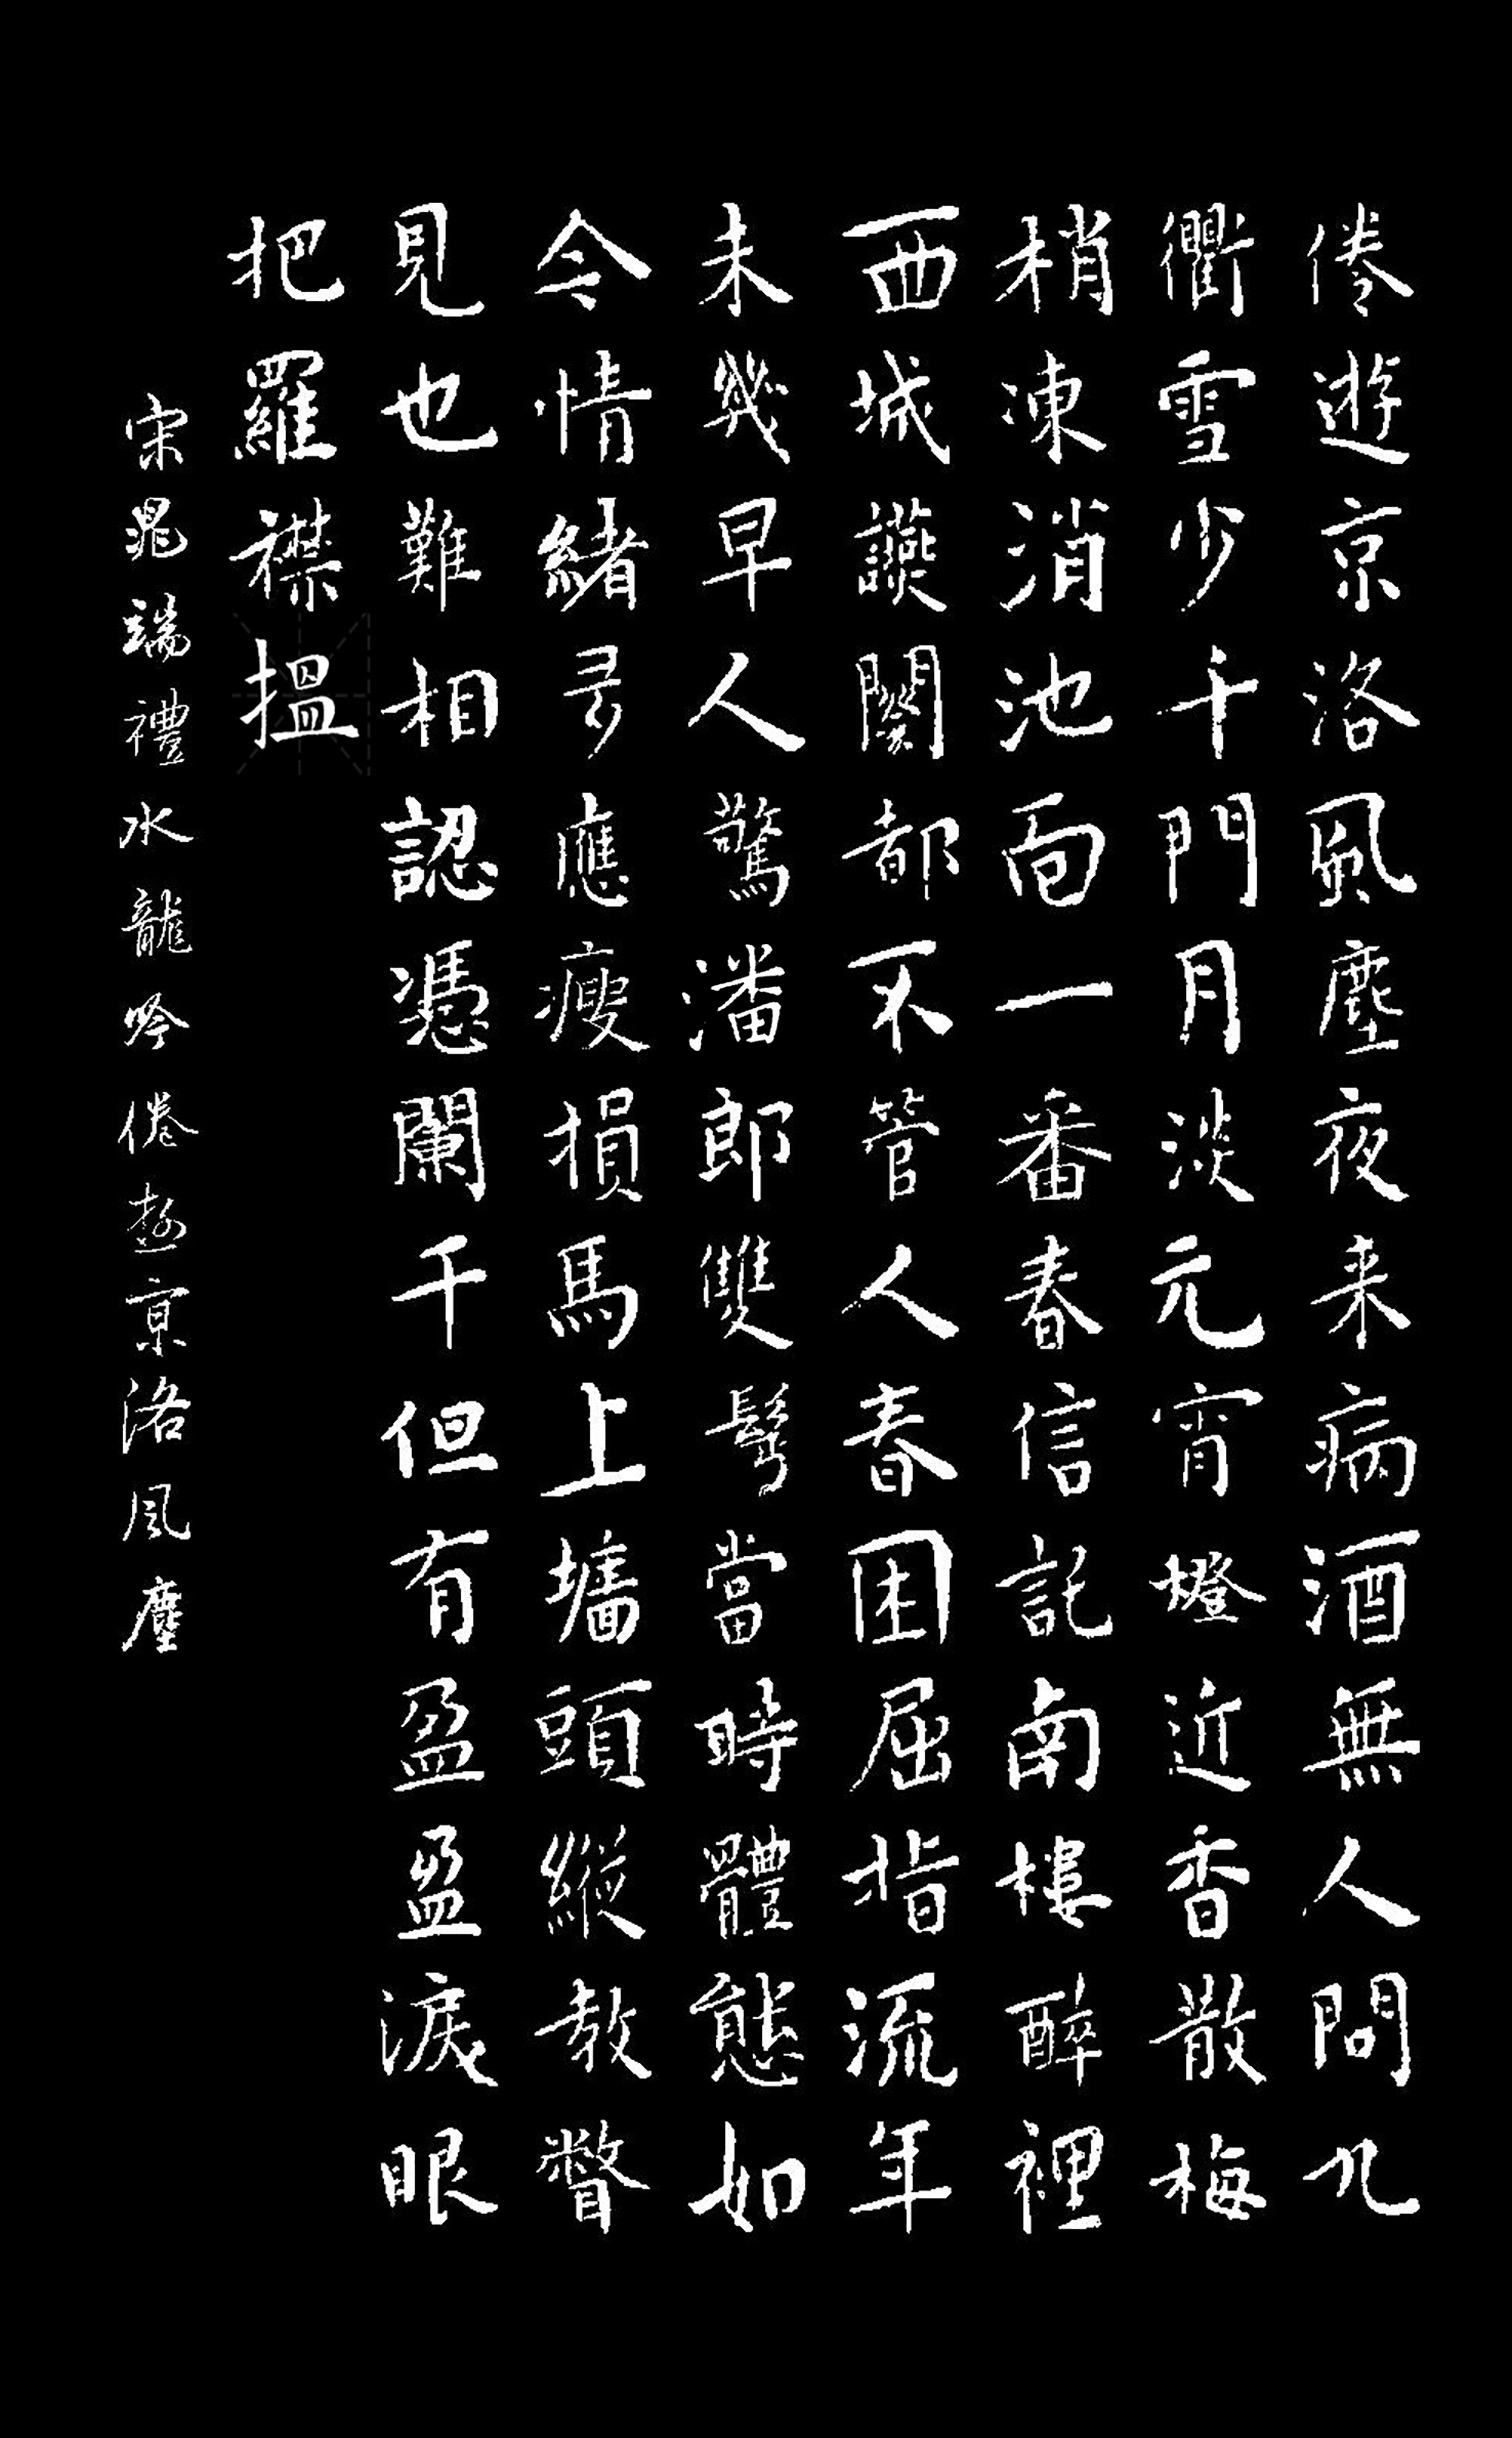 倦遊京洛風塵夜来病酒無人問九
衢雪少千門月淡元宵燈近香散梅
梢凍消池面一番春信記南樓醉裡
西城讌闋都不管人春困屈指流年
未幾早人驚潘郎雙鬢當時體態如
今情緒多應瘦損馬上墻頭縱教瞥
見也難相認憑闌干但有盈盈淚眼
把羅襟搵
宋晁端禮水龍吟倦遊京洛風塵